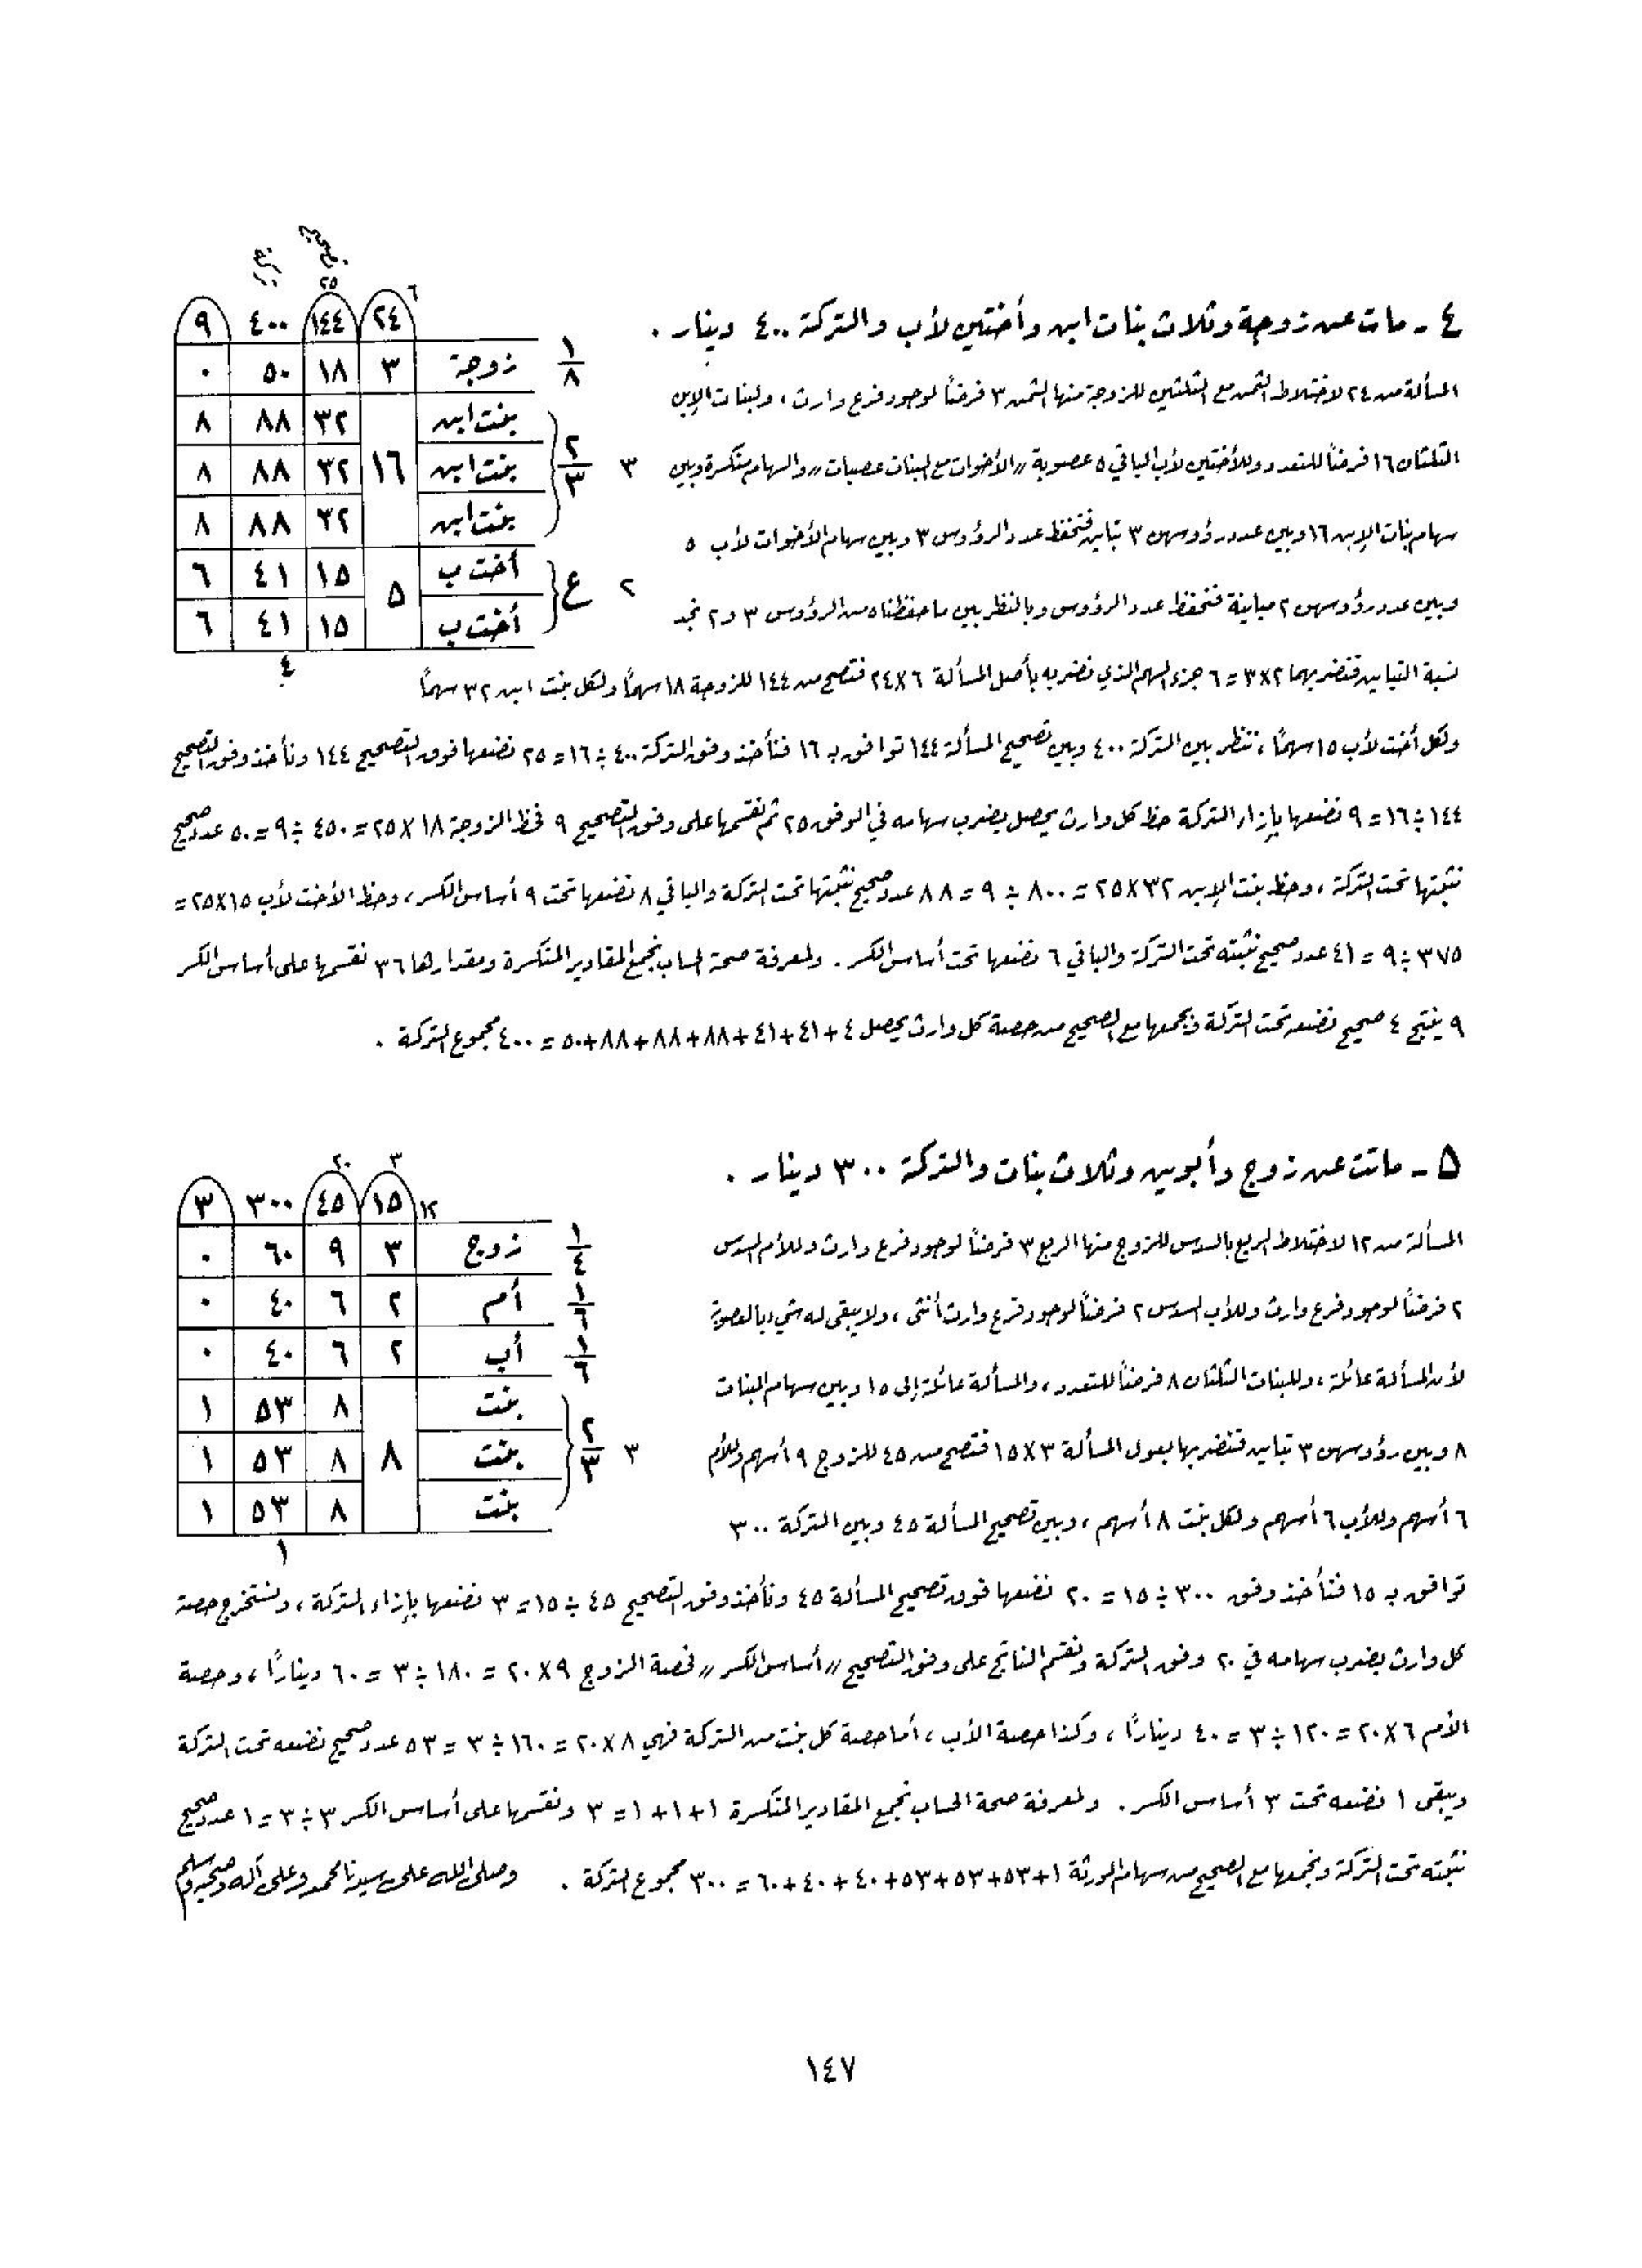 تصحيح
تركة
٦
٢٥
٢٤ ١٤٤ ٤٠٠ ٩
١/٨ زوجة ٣ ١٨ ٥٠ ٠
بنت ابن ٣٢ ٨٨ ٨
٣ ٢/٣ بنت ابن ١٦ ٣٢ ٨٨ ٨
بنت ابن ٣٢ ٨٨ ٨
أخت ب ١٥ ٤١ ٦
٢ ع ٥
أخت ب ١٥ ٤١ ٦
٤
٤ - مات عن زوجة وثلاث بنات ابن وأختين لأب والتركة ٤٠٠ دينار .
المسألة من ٢٤ لاختلاط الثمن مع الثلثين للزوجة منها الثمن ٣ فرضاً لوجود فرع وارث ، ولبنات الإبن
الثلثان ١٦ فرضاً للتعدد وللأختين لأب الباقي ٥ عصوبة ,, الأخوات مع البنات عصبات ,, والسهام منكسرة وبين
سهام بنات الإبن ١٦ وبين عدد رؤوسهن ٣ تباين فنحفظ عدد الرؤوس ٣ وبين سهام الأخوات لأب ٥
وبين عدد رؤوسهن ٢ مباينة فنحفظ عدد الرؤوس وبالنظر بين ما حفظناه من الرؤوس ٣ و ٢ نجد
نسبة التباين فنضربهما ٢×٣ = ٦ جزء السهم الذي نضربه بأصل المسألة ٦×٢٤ فتصح من ١٤٤ للزوجة ١٨ سهماً ولكل بنت ابن ٣٢ سهماً
ولكل أخت لأب ١٥ سهماً ، ننظر بين التركة ٤٠٠ وبين تصحيح المسألة ١٤٤ توافق بـ ١٦ فنأخذ وفق التركة ٤٠٠ ÷ ١٦ = ٢٥ نضعها فوق التصحيح ١٤٤ ونأخذ وفق التصحيح
١٤٤ ÷ ١٦ = ٩ نضعها بإزاء التركة حظ كل وارث يحصل بضرب سهامه في الوفق ٢٥ ثم نقسمها على وفق التصحيح ٩ فحظ الزوجة ١٨ × ٢٥ = ٤٥٠ ÷ ٩ = ٥٠ عدد صحيح
نثبتها تحت التركة ، وحظ بنت الإبن ٣٢ × ٢٥ = ٨٠٠ ÷ ٩ = ٨٨ عدد صحيح نثبتها تحت التركة والباقي ٨ نضعها تحت ٩ أساس الكسر ، وحظ الأخت لأب ١٥ × ٢٥ =
٣٧٥ ÷ ٩ = ٤١ عدد صحيح نثبته تحت التركة والباقي ٦ نضعها تحت أساس الكسر . ولمعرفة صحة الحساب نجمع المقادير المنكسرة ومقدارها ٣٦ نقسمها على أساس الكسر
٩ ينتج ٤ صحيح نضعه تحت التركة ونجمعها مع الصحيح من حصة كل وارث يحصل ٤ + ٤١ + ٤١ + ٨٨ + ٨٨ + ٨٨ + ٥٠ = ٤٠٠ مجموع التركة .
٣ ٢٠
١٢ ١٥ ٤٥ ٣٠٠ ٣
١/٤ زوج ٣ ٩ ٦٠ ٠
١/٦ أم ٢ ٦ ٤٠ ٠
١/٦ أب ٢ ٦ ٤٠ ٠
بنت ٨ ٥٣ ١
٣ ٢/٣ بنت ٨ ٨ ٥٣ ١
بنت ٨ ٥٣ ١
١
٥ - ماتت عن زوج وأبوين وثلاث بنات والتركة ٣٠٠ دينار .
المسألة من ١٢ لاختلاط الربع بالسدس للزوج منها الربع ٣ فرضاً لوجود فرع وارث وللأم السدس
٢ فرضاً لوجود فرع وارث وللأب السدس ٢ فرضاً لوجود فرع وارث أنثى ، ولا يبقى له شيء بالعصوبة
لأن المسألة عائلة ، وللبنات الثلثان ٨ فرضاً للتعدد ، والمسألة عائلة إلى ١٥ وبين سهام البنات
٨ وبين رؤوسهن ٣ تباين فنضربها بعول المسألة ٣ × ١٥ فتصح من ٤٥ للزوج ٩ أسهم وللأم
٦ أسهم وللأب ٦ أسهم ولكل بنت ٨ أسهم ، وبين تصحيح المسألة ٤٥ وبين التركة ٣٠٠
توافق بـ ١٥ فنأخذ وفق ٣٠٠ ÷ ١٥ = ٢٠ نضعها فوق تصحيح المسألة ٤٥ ونأخذ وفق التصحيح ٤٥ ÷ ١٥ = ٣ نضعها بإزاء التركة ، ونستخرج حصة
كل وارث بضرب سهامه في ٢٠ وفق التركة ونقسم الناتج على وفق التصحيح ,, أساس الكسر ,, فحصة الزوج ٩ × ٢٠ = ١٨٠ ÷ ٣ = ٦٠ ديناراً ، وحصة
الأم ٦ × ٢٠ = ١٢٠ ÷ ٣ = ٤٠ ديناراً ، وكذا حصة الأب ، أما حصة كل بنت من التركة فهي ٨ × ٢٠ = ١٦٠ ÷ ٣ = ٥٣ عدد صحيح نضعه تحت التركة
ويبقى ١ نضعه تحت ٣ أساس الكسر . ولمعرفة صحة الحساب نجمع المقادير المنكسرة ١ + ١ + ١ = ٣ ونقسمها على أساس الكسر ٣ ÷ ٣ = ١ عدد صحيح
نثبته تحت التركة ونجمعها مع الصحيح من سهام الورثة ١ + ٥٣ + ٥٣ + ٥٣ + ٤٠ + ٤٠ + ٦٠ = ٣٠٠ مجموع التركة . وصلى الله على سيدنا محمد وعلى آله وصحبه وسلم
١٤٧